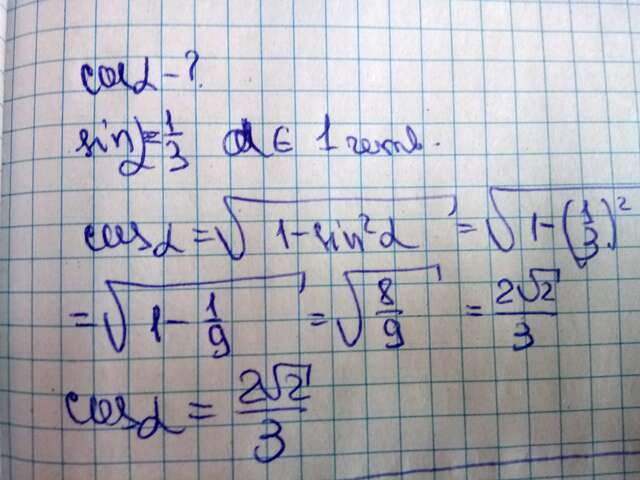 cosα - ?
sinα = 1/3 α ∈ 1 четв.
cosα = √(1 - sin²α) = √(1 - (1/3)²)
= √(1 - 1/9) = √(8/9) = 2√2/3
cosα = 2√2/3